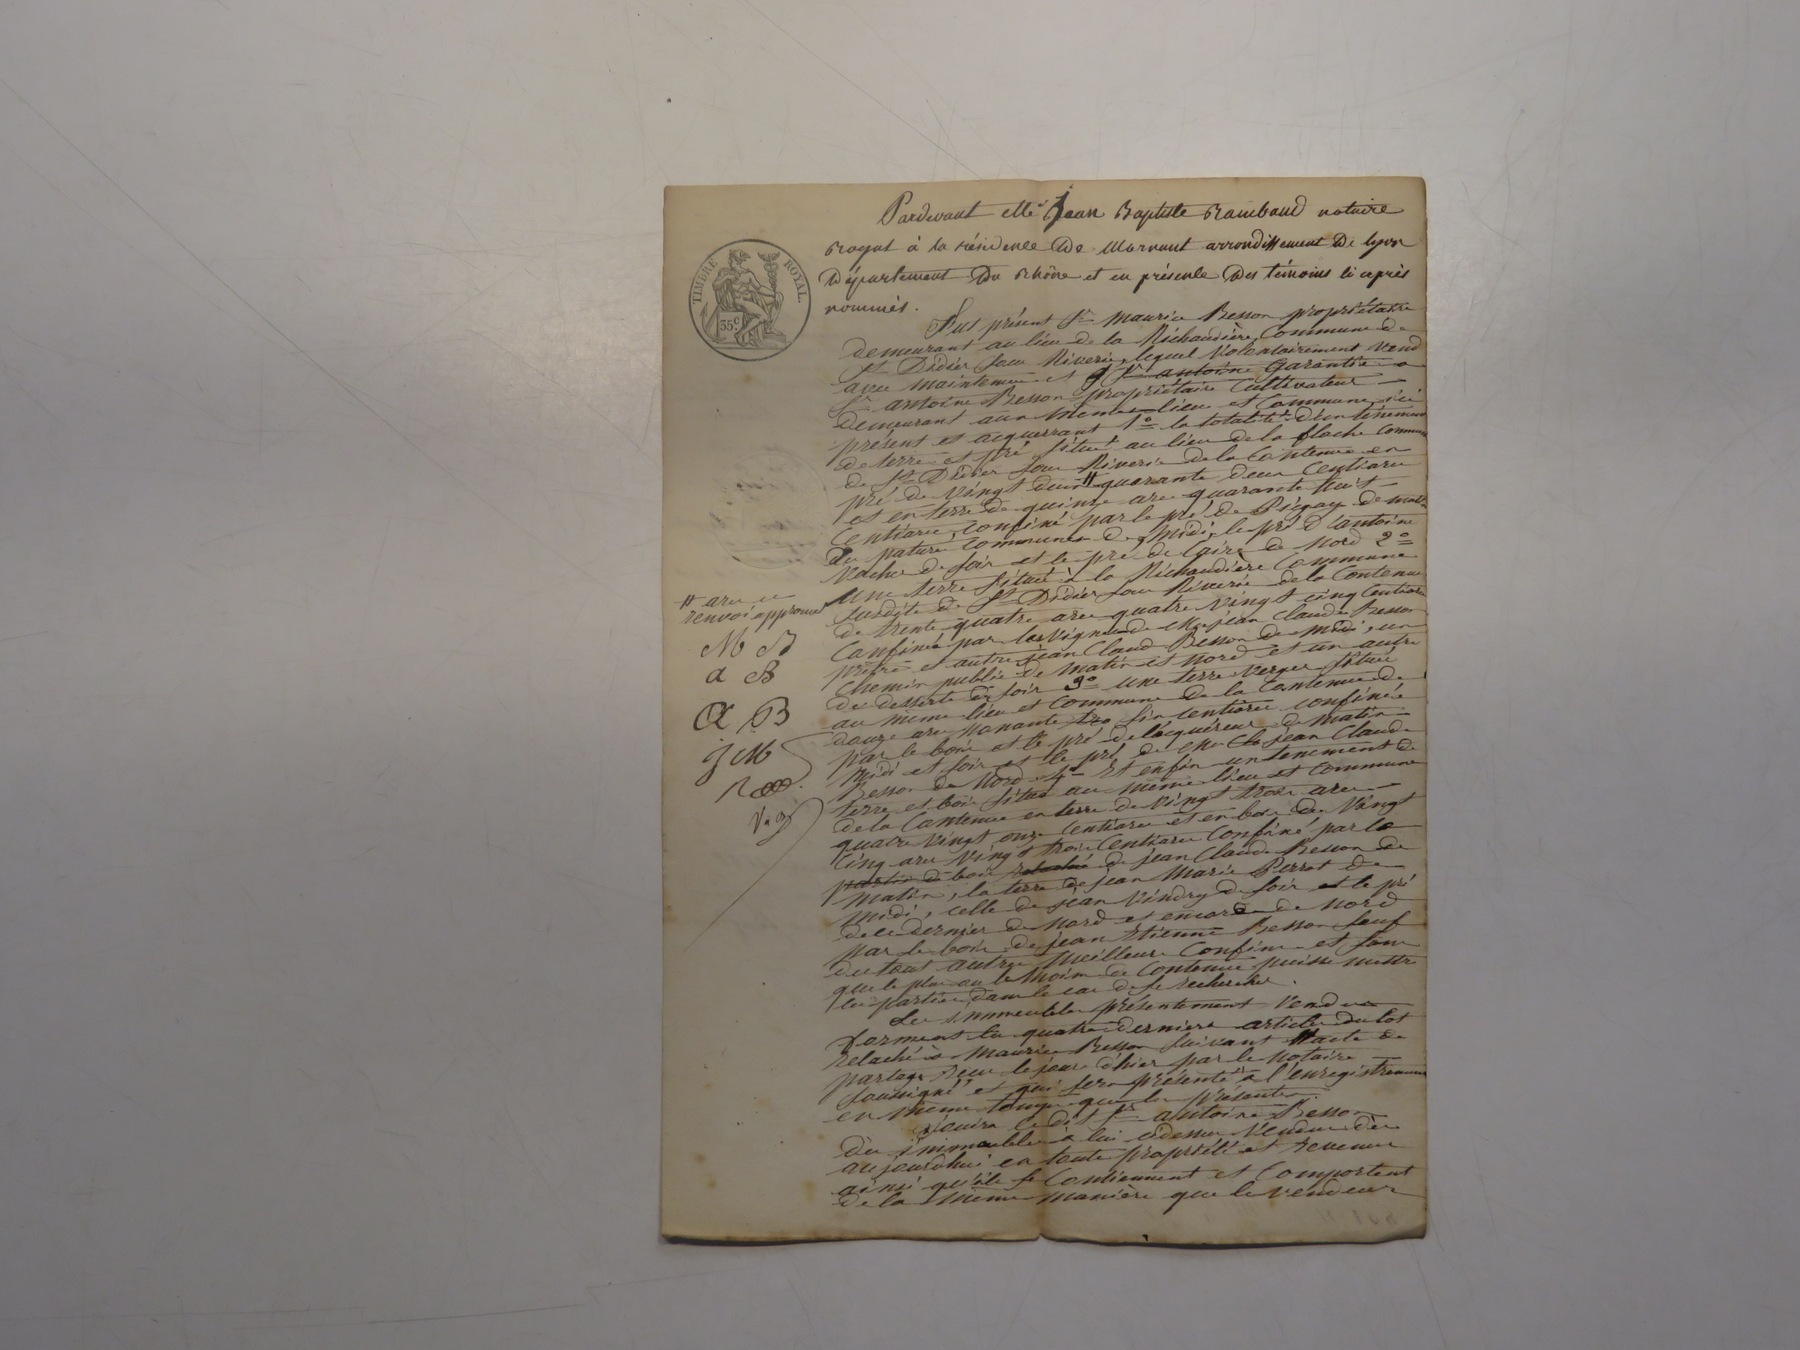 Pardevant Me Jean Baptiste Rambaud notaire
TIMBRE ROYAL
35c
Royal à la résidence De Mornant arrondissement De lyon
Département Du Rhône et en présence Des témoins ci après
nommés.
Fut présent Sr Maurice Besson propriétaire
demeurant au lieu de la Richaudière, Commune de
St Didier sous Riverie, lequel Volontairement vend
avec maintenue et garantie a
Sr antoine Besson propriétaire Cultivateur
demeurant aux memes lieu et Commune, ici
présent et acquerrant 1o la totalité d'un tènement
de terre et pré situé au lieu de la flache Commune
de St Didier sous Riverie de la Contenue en
pré de vingt deux # quarante deux Centiares
et en terre de quinze ares quarante huit
Centiares, Confiné par le pré de de matin
pature Communes de Midi, le pré d'antoine
Vache de soir et le pré de de Nord 2o
Une terre située à la Richaudière Commune
susdite de St Didier sous Riverie de la Contenue
# ares ce
renvoi approuvé
de trente quatre ares quatre Vingt cinq Centiares
Confinée par les Vignes de Jean Claude Besson
M B
prêtre et autre jean Claude Besson de midi, un
a B
chemin public de matin et Nord et un autre
de desserte de soir 3o une terre verger située
A B
au même lieu et Commune de la Contenue de
douze ares nonante six centiares confinée
j M
par le bois et le pré de l'acquéreur de matin
midi et soir et le pré de jean Claude
R
Besson de Nord 4o Et enfin un tenement de
terre et bois situé au même lieu et commune
de la Contenue en terre de Vingt trois ares
quatre Vingt onze Centiares et en bois de Vingt
cinq ares Vingt trois Centiares Confiné par le
bois de jean Claude Besson de
matin, la terre de jean Marie Perret de
midi, celle de jean Vindry de soir et le pré
de ce dernier de Nord et encore de Nord
par le bois de jean Etienne Besson sauf
du tout autres meilleurs Confins et sans
que le plus ou le moins de Contenue puisse mettre
les parties dans le cas de se rechercher.
Les immeubles présentement Vendus
forment les quatre derniers articles du lot
relaché à Maurice Besson suivant l'acte de
partage Reçu le jour d'hier par le Notaire
soussigné et qui sera présenté à l'enregistrement
en même temps que les présentes.
Jouira ledit Sr antoine Besson
des immeubles à lui cidessus Vendus dès
aujourdhui en toute propriété et revenus
ainsi qu'ils se Contiennent et Comportent
de la même manière que le vendeur